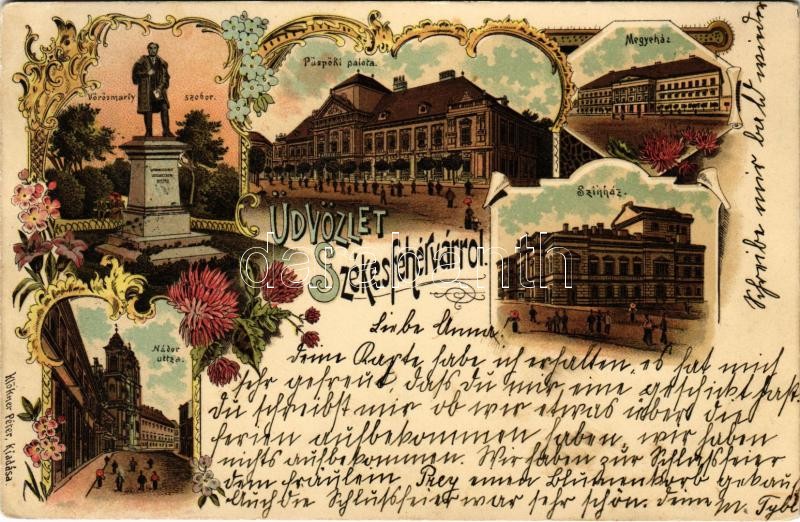 Vörösmarty szobor.
Püspöki palota.
Megyeház
Szinház.
Nádor
uttza.
ÜDVÖZLET
Székesfehérvárról.
Klökner Péter, Kiadása.
darabanth
Liebe Anna!
deine Karte habe ich erhalten, es hat mich
sehr gefreut, dass du mir eine geschickt hast.
Du schreibst mir ob wir etwas über die
ferien aufbekommen haben, wir haben
nichts aufbekommen. Wir haben zur Schlussfeier
dem fräulein Prey einen Blumenkorb gekauft
Auch die Schlussfeier war sehr schön. deine M. Tybl
Schreibe mir bald wieder